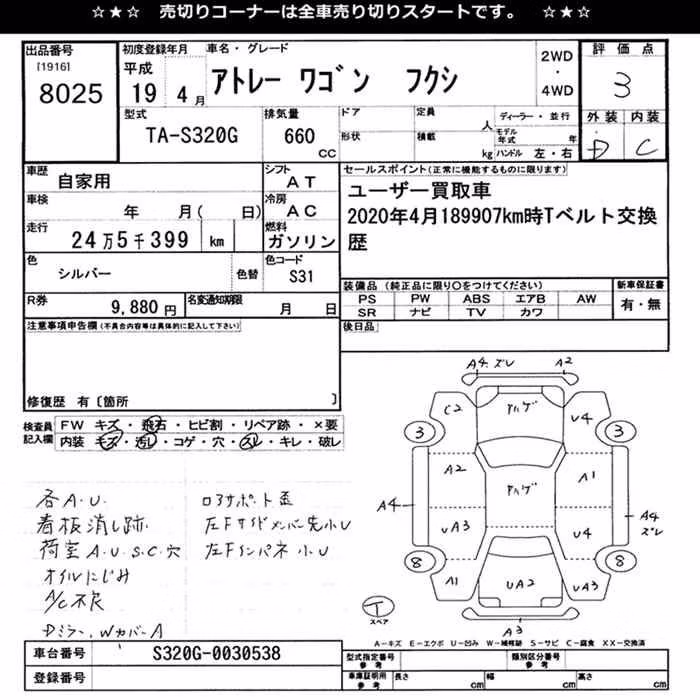 ☆★☆ 売切りコーナーは全車売り切りスタートです。 ☆★☆
出品番号
[1916]
8025
初度登録年月
平成
19 4月
車名・グレード
アトレー ワゴン フクシ
2WD
・
4WD
評価点
3
外装 内装
D C
型式
TA-S320G
排気量
660
CC
ドア
形状
定員
人
積載
kg
ディーラー・並行
モデル年式 年
ハンドル 左・右
車歴
自家用
シフト
AT
車検
年 月( 日)
冷房
AC
走行
24万5千399 km
燃料
ガソリン
色
シルバー
色替
色コード
S31
R券
9,880 円
名変通知期限
月 日
セールスポイント(正常に機能するものに限ります)
ユーザー買取車
2020年4月189907km時Tベルト交換
歴
装備品 (純正品に限り○をつけてください)
PS PW ABS エアB AW
SR ナビ TV カワ
新車保証書
有・無
後日品
注意事項申告欄(不具合内容等は具体的に記入して下さい)
修復歴 有〔箇所 〕
検査員
記入欄
FW キズ・飛石・ヒビ割・リペア跡・×要
内装 キズ・汚れ・コゲ・穴・スレ・キレ・破レ
各A.U.
看板消し跡
荷室A.U.S.C.穴
オイルにじみ
A/C不良
Dミラー、WカバーA
ロアサポート歪
左Fサイドメンバー先小U
左Fインパネ小U
A4.ズレ A2
C2 アハゲ U4
3 3
A2 アハゲ A1
A4 A4
ズレ
UA3 U4
8 8
A1 UA2 UA3
T
スペア
A3
A-キズ E-エクボ U-凹み W-補修跡 S-サビ C-腐食 XX-交換済
車台番号
S320G-0030538
登録番号
型式指定番号
参考
類別区分番号
参考
車庫証明用
参考
長さ cm 幅 cm 高さ cm